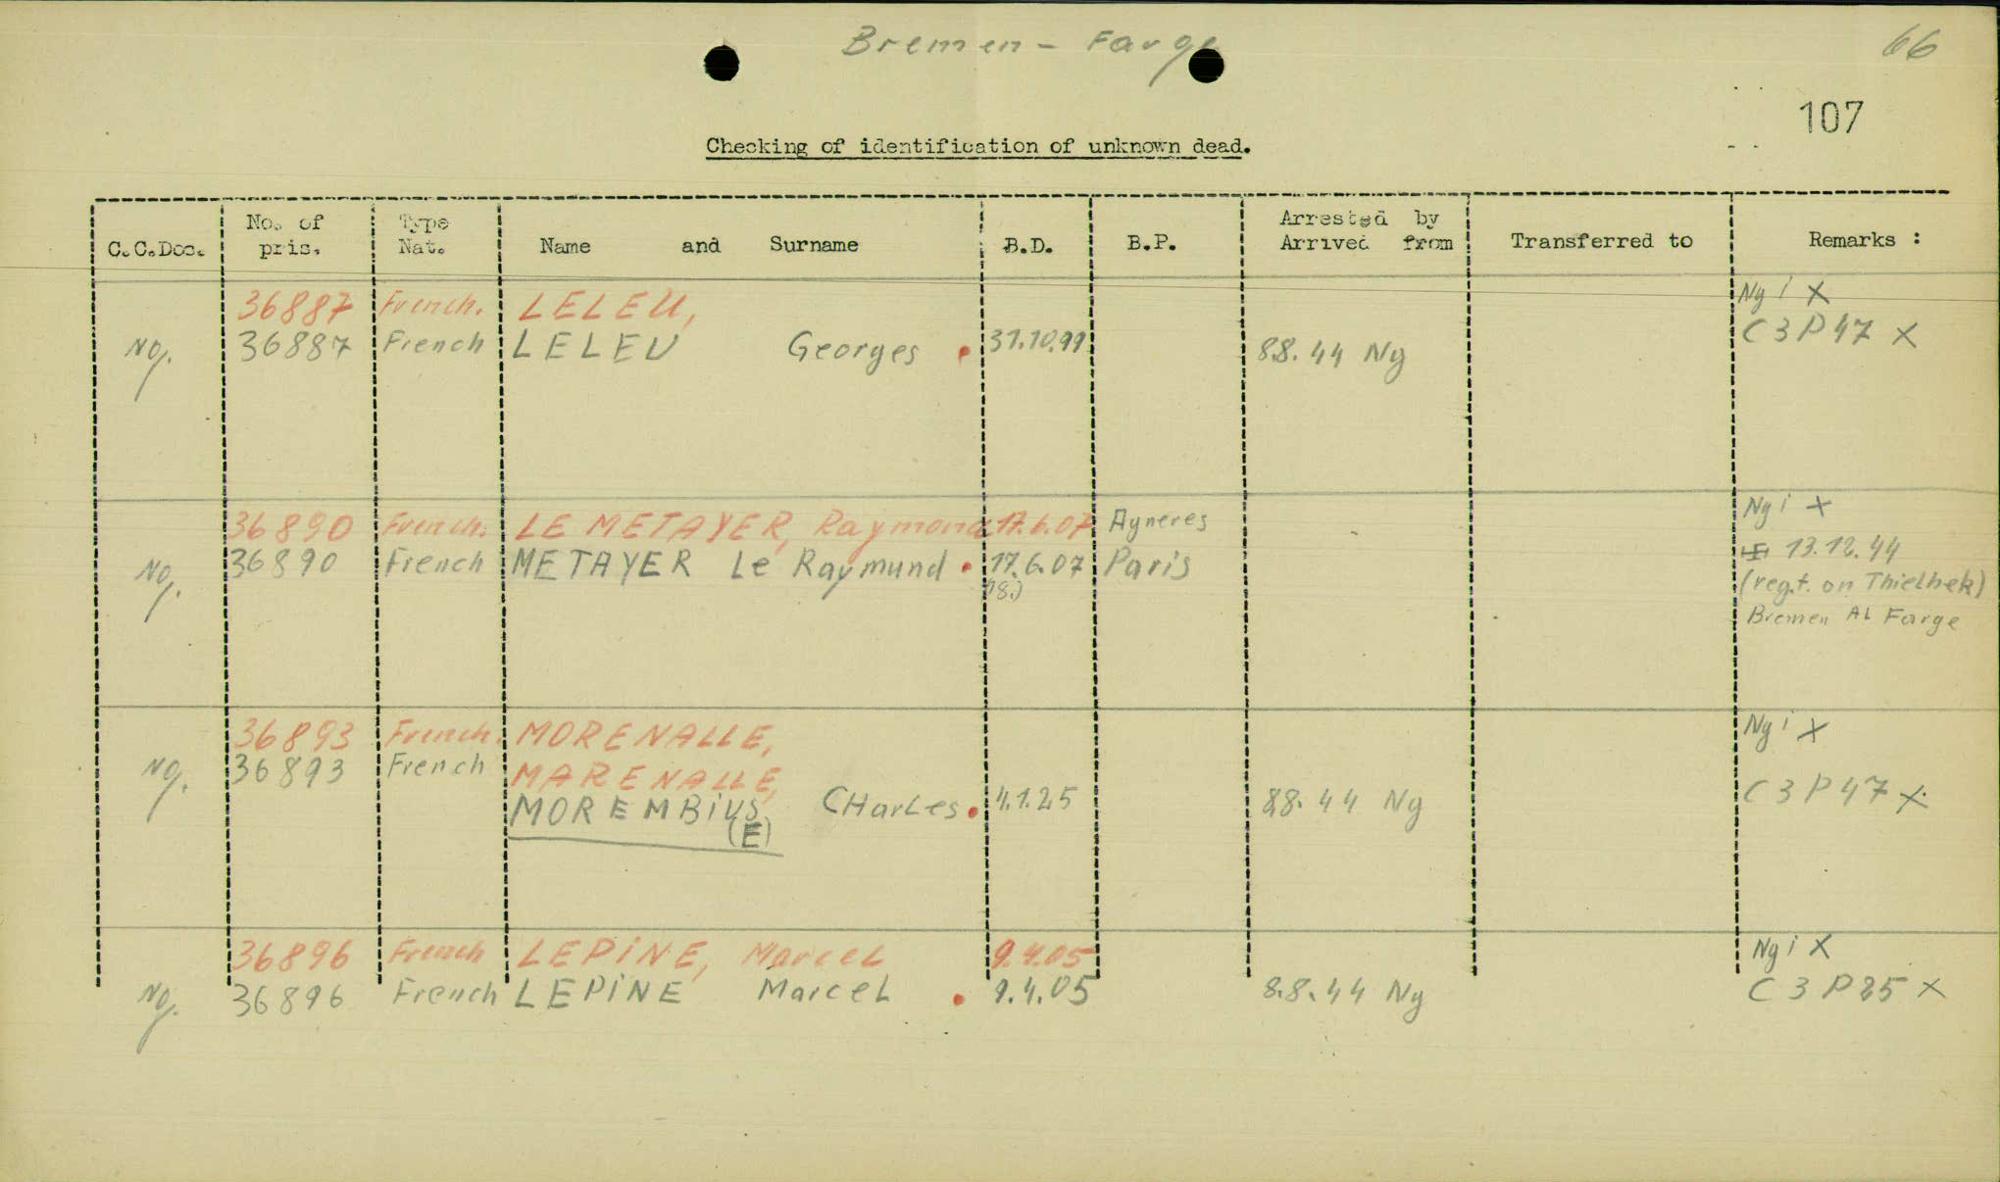 Bremen - Farge
66
107
Checking of identification of unknown dead.
C.C.Doc. No. of pris. Type Nat. Name and Surname B.D. B.P. Arrested by Arrived from Transferred to Remarks :
36887 French. LELEU, Ng i X
Ng. 36887 French LELEU Georges 31.10.99 8.8.44 Ng C3P47 X
36890 French. LE METAYER, Raymond 17.6.07 Agneres Ng i X
Ng. 36890 French METAYER Le Raymund 17.6.07 Paris 13.12.44
(18.) (regt. on Thielhek)
Bremen AL Farge
36893 French. MORENALLE, Ng i X
Ng. 36893 French MARENALLE,
MOREMBIUS CHarLes 4.1.25 8.8.44 Ng C3P47 X
(E)
36896 French LEPINE, Marcel 9.4.05 Ng i X
Ng. 36896 French LEPINE MarceL 9.4.05 8.8.44 Ng C3P25 X